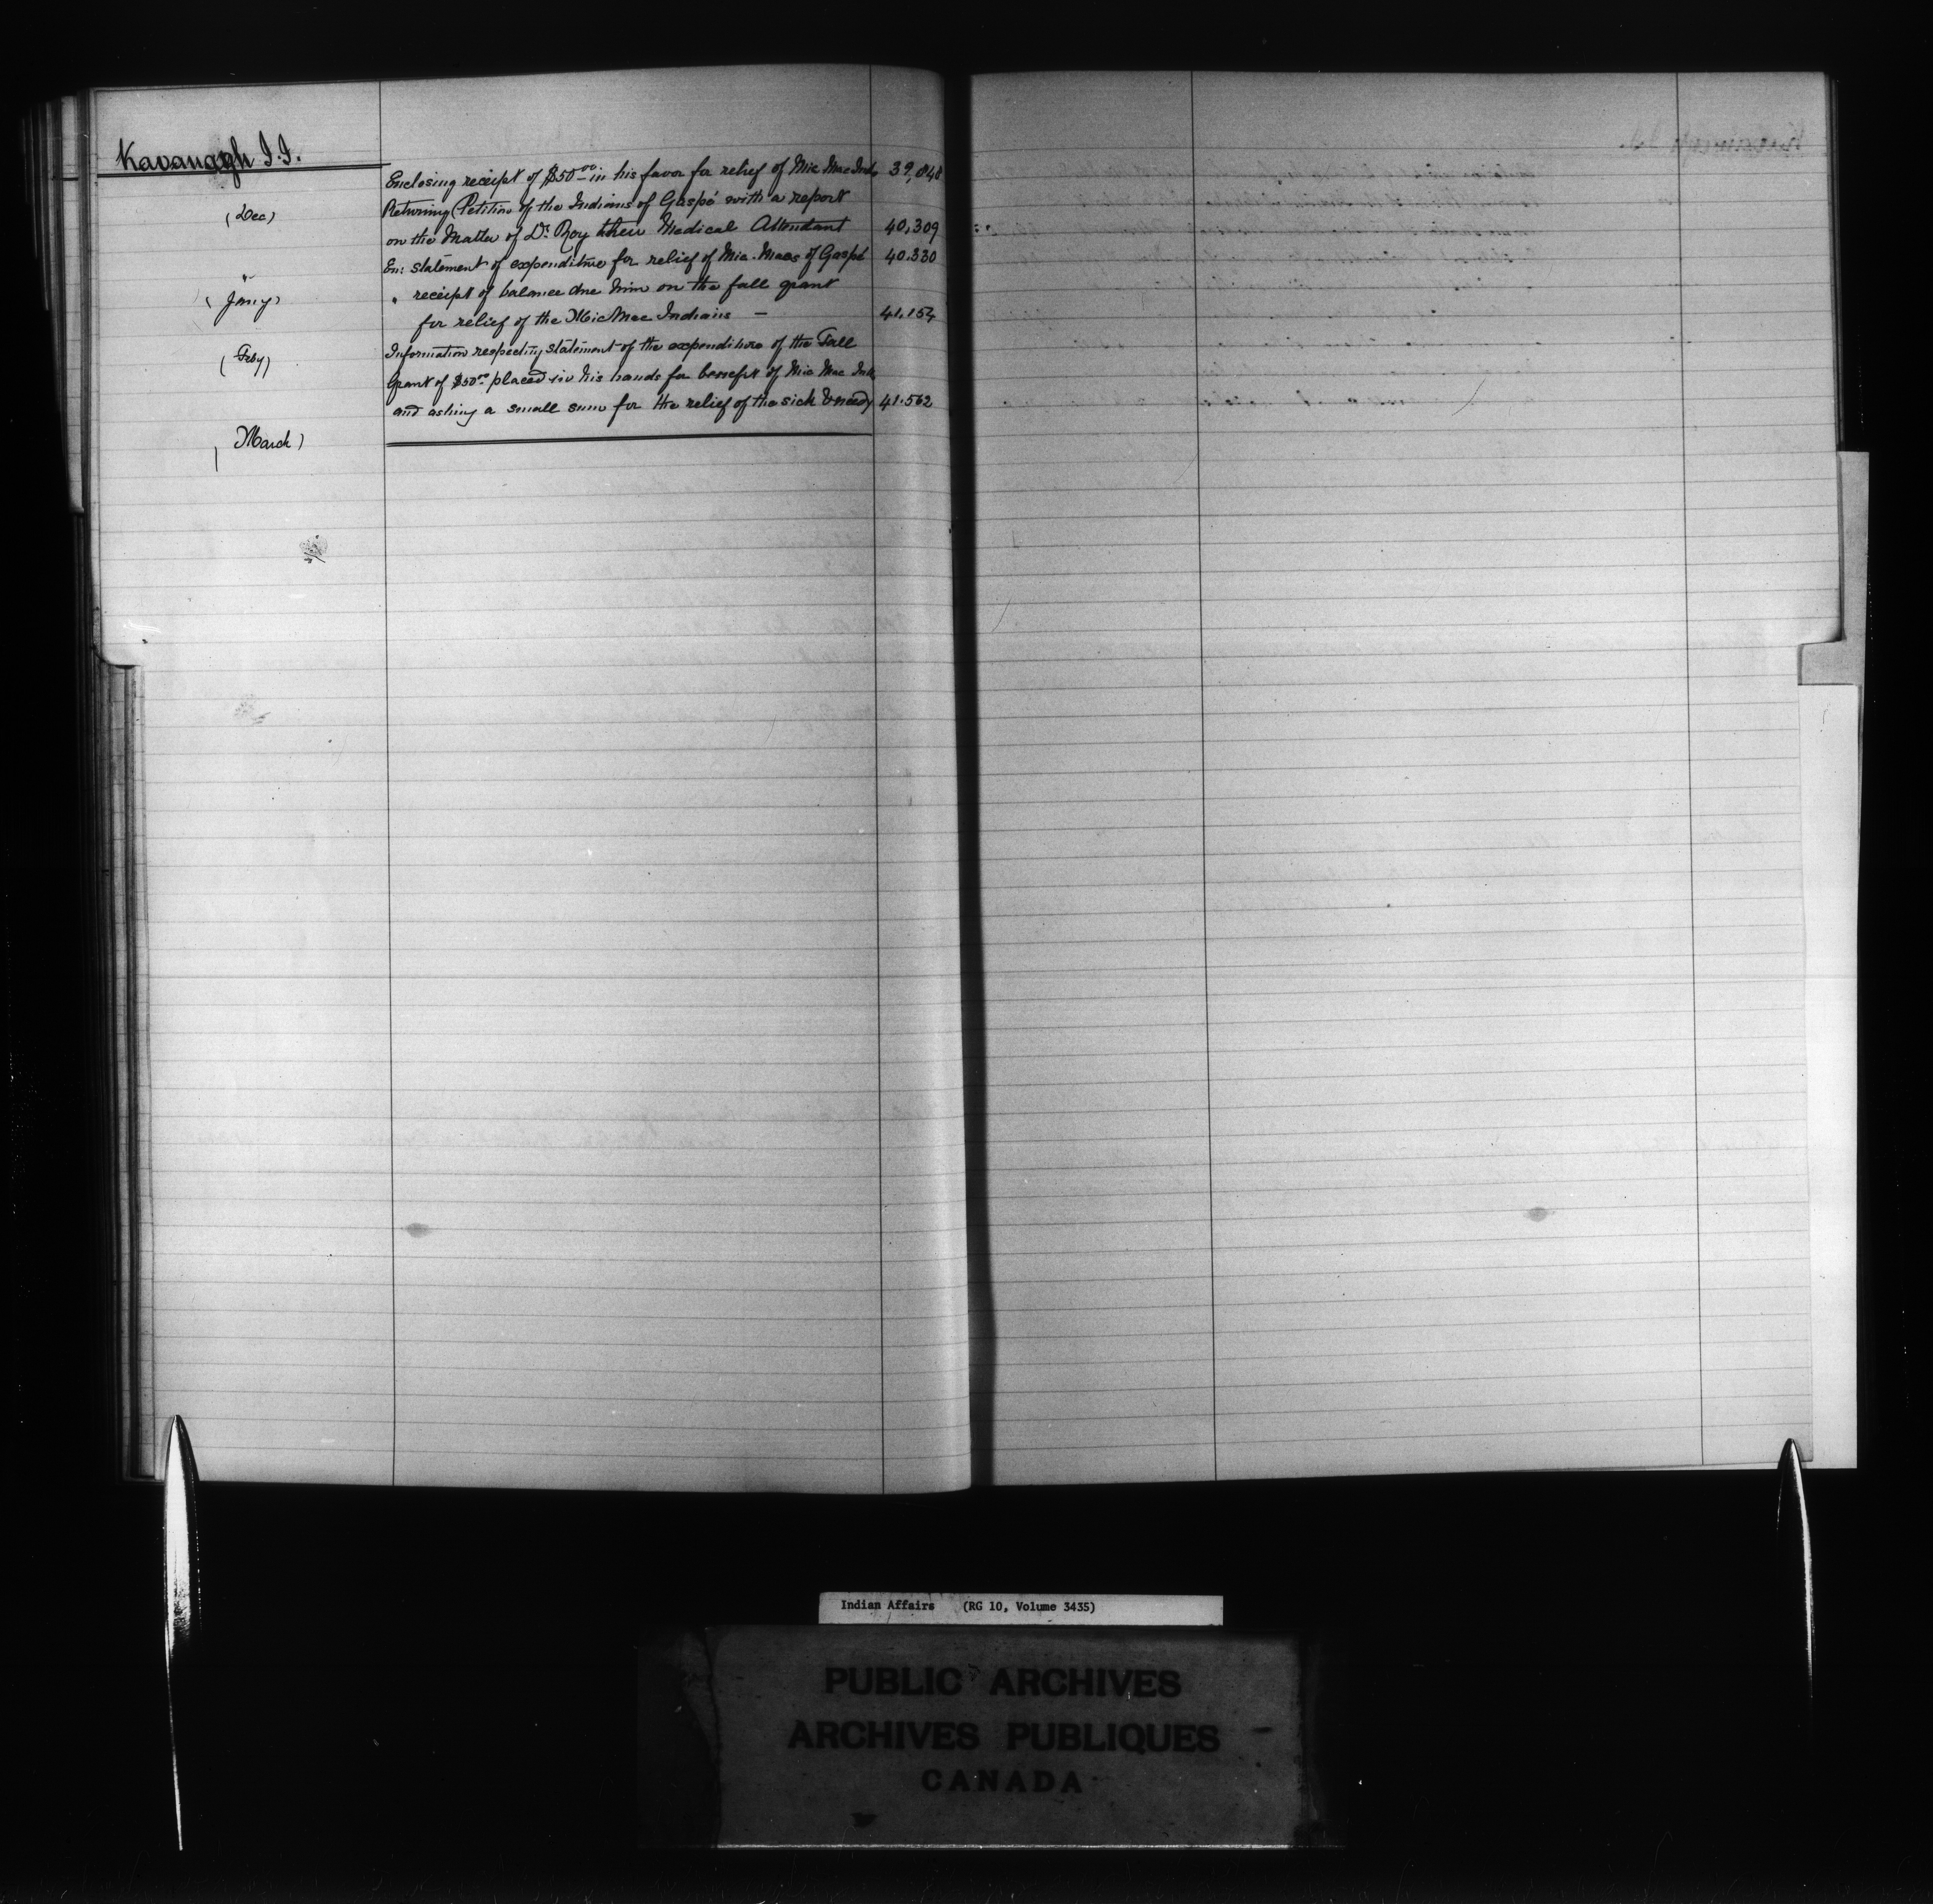 Kavanagh J.J.
(Dec) Enclosing receipt of $50.00 in his favor for relief of Mic Mac Inds 39,848
Returning Petition of the Indians of Gaspé with a report
on the Matter of Dr. Roy their Medical Attendant 40,309
" En: statement of expenditure for relief of Mic-Macs of Gaspé 40.330
(Jany) " receipt of balance due him on the fall grant
for relief of the Mic Mac Indians — 41.154
(Feby) Information respecting statement of the expenditure of the Fall
Grant of $50.00 placed in his hands for benefit of Mic Mac Inds
and asking a small sum for the relief of the sick & needy 41.562
(March)
Indian Affairs (RG 10, Volume 3435)
PUBLIC ARCHIVES
ARCHIVES PUBLIQUES
CANADA